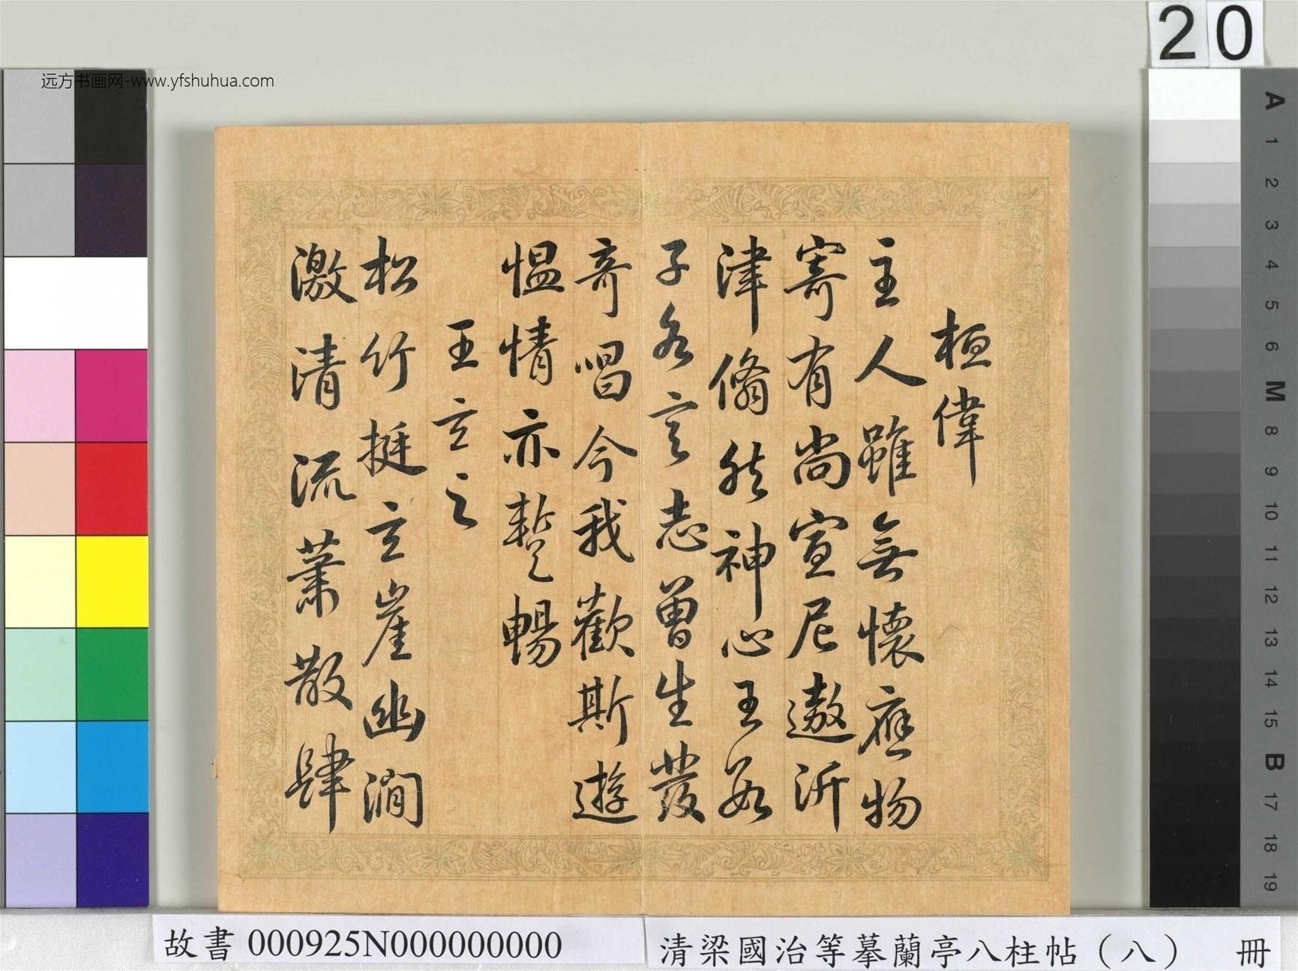 20
远方书画网-www.yfshuhua.com
桓偉
主人雖無懷應物
寄有尚宣尼遨沂
津翛然神心王數
子各言志曾生發
奇唱今我歡斯遊
愠情亦蹔暢
王玄之
松竹挺玄崖幽澗
激清流蕭散肆
A
1
2
3
4
5
6
M
8
9
10
11
12
13
14
15
B
17
18
19
故書 000925N000000000
清梁國治等摹蘭亭八柱帖（八） 冊